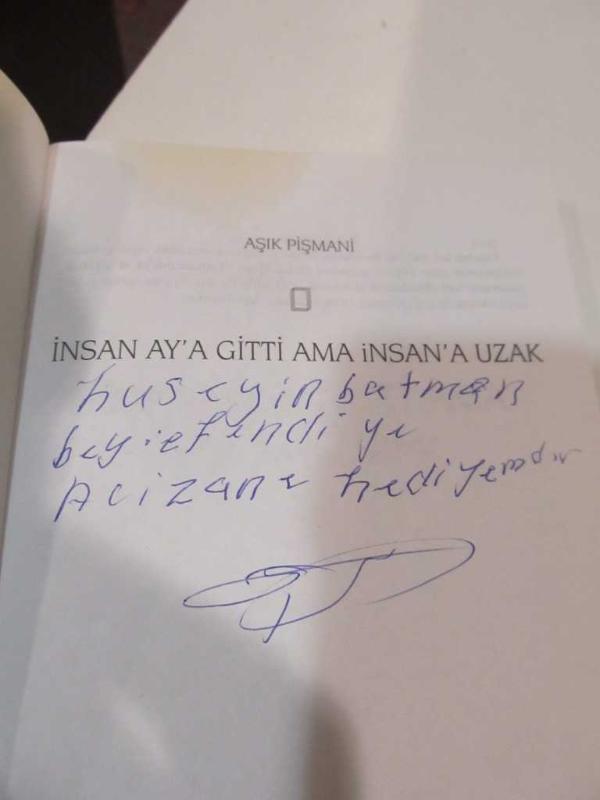 AŞIK PİŞMANİ
İNSAN AY'A GİTTİ AMA iNSAN'A UZAK
huseyin batman
beyiefendi ye
Acizane hediyemdir